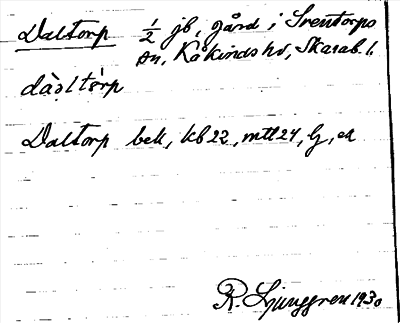 Daltorp ½ jb, gård i Sventorps
sn, Kåkinds hd, Skarab. l.
dàₒltòrp
Daltorp bek, kb 22, mtl 24, G, ek
R. Ljunggren 1930